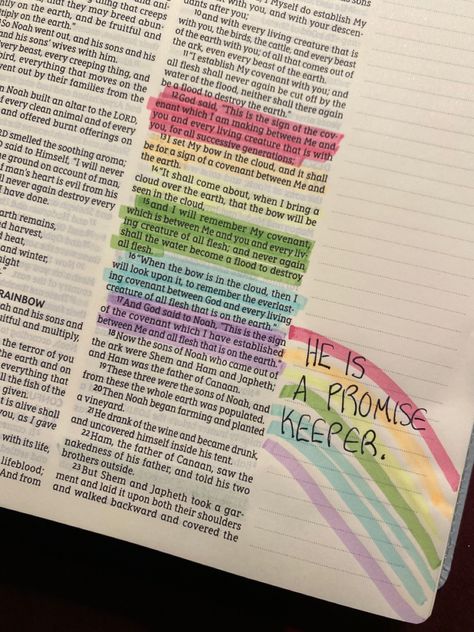 thing that creeps
that they may breed abun-
on the earth, and be fruitful and
multiply on the earth."
So Noah went out, and his sons and his
and his sons' wives with him.
Every beast, every creeping thing, and
bird, everything that moves on the
went out by their families from the
n Noah built an altar to the LORD,
every clean animal and of every
and offered burnt offerings on
LORD smelled the soothing aroma;
D said to Himself, "I will never
he ground on account of man,
of man's heart is evil from his
ll never again destroy every
I have done.
arth remains,
d harvest,
d heat,
and winter,
night
RAINBOW
ah and his sons and
uitful and multiply,
the terror of you
the earth and on
everything that
all the fish of the
given.
t is alive shall
you, as I gave
with its life,
lifeblood;
And from
I Myself do establish My
with you, and with your descen-
dants after you;
10 and with every living creature that is
with you, the birds, the cattle, and every beast
of the earth with you; of all that comes out of
the ark, even every beast of the earth.
11 "I establish My covenant with you; and
all flesh shall never again be cut off by the
water of the flood, neither shall there again
be a flood to destroy the earth."
12 God said, "This is the sign of the cov-
enant which I am making between Me and
you and every living creature that is with
you, for all successive generations;
13 I set My bow in the cloud, and it shall
be for a sign of a covenant between Me and
the earth.
14 "It shall come about, when I bring a
cloud over the earth, that the bow will be
seen in the cloud,
15 and I will remember My covenant,
which is between Me and you and every liv-
ing creature of all flesh; and never again
shall the water become a flood to destroy
all flesh.
16 "When the bow is in the cloud, then I
will look upon it, to remember the everlast-
ing covenant between God and every living
creature of all flesh that is on the earth."
17 And God said to Noah, "This is the sign
of the covenant which I have established
between Me and all flesh that is on the earth."
18 Now the sons of Noah who came out of
the ark were Shem and Ham and Japheth;
and Ham was the father of Canaan.
19 These three were the sons of Noah, and
from these the whole earth was populated.
20 Then Noah began farming and planted
a vineyard.
21 He drank of the wine and became drunk,
and uncovered himself inside his tent.
22 Ham, the father of Canaan, saw the
nakedness of his father, and told his two
brothers outside.
23 But Shem and Japheth took a gar-
ment and laid it upon both their shoulders
and walked backward and covered the
HE IS
A PROMISE
KEEPER.